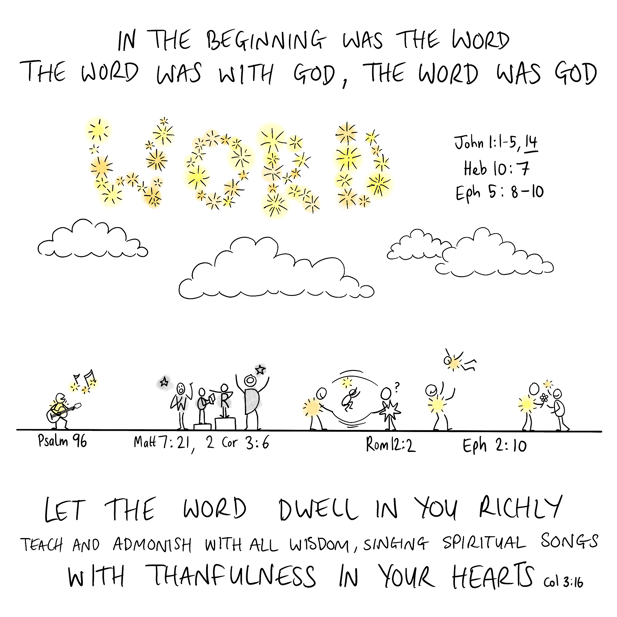 IN THE BEGINNING WAS THE WORD
THE WORD WAS WITH GOD, THE WORD WAS GOD
WORD
John 1:1-5, 14
Heb 10:7
Eph 5:8-10
?
Psalm 96
Matt 7:21, 2 Cor 3:6
Rom 12:2
Eph 2:10
LET THE WORD DWELL IN YOU RICHLY
TEACH AND ADMONISH WITH ALL WISDOM, SINGING SPIRITUAL SONGS
WITH THANFULNESS IN YOUR HEARTS Col 3:16